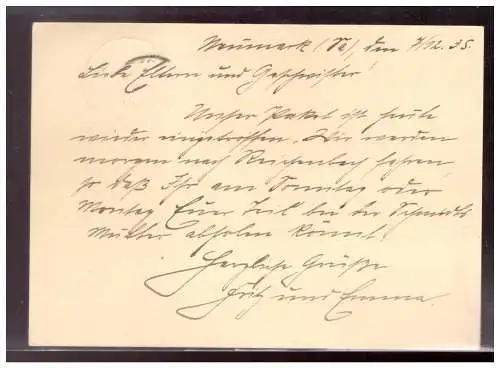 Neumark (Sa), den 7/12.35.
Liebe Eltern und Geschwister!
Unser Paket ist heute
wieder eingetroffen. Wir werden
morgen nach Reichenbach fahren,
so daß Ihr am Sonntag oder
Montag Euer Teil bei der Schmidts
Mutter abholen könnt.
Herzliche Grüße
Fritz und Emma.